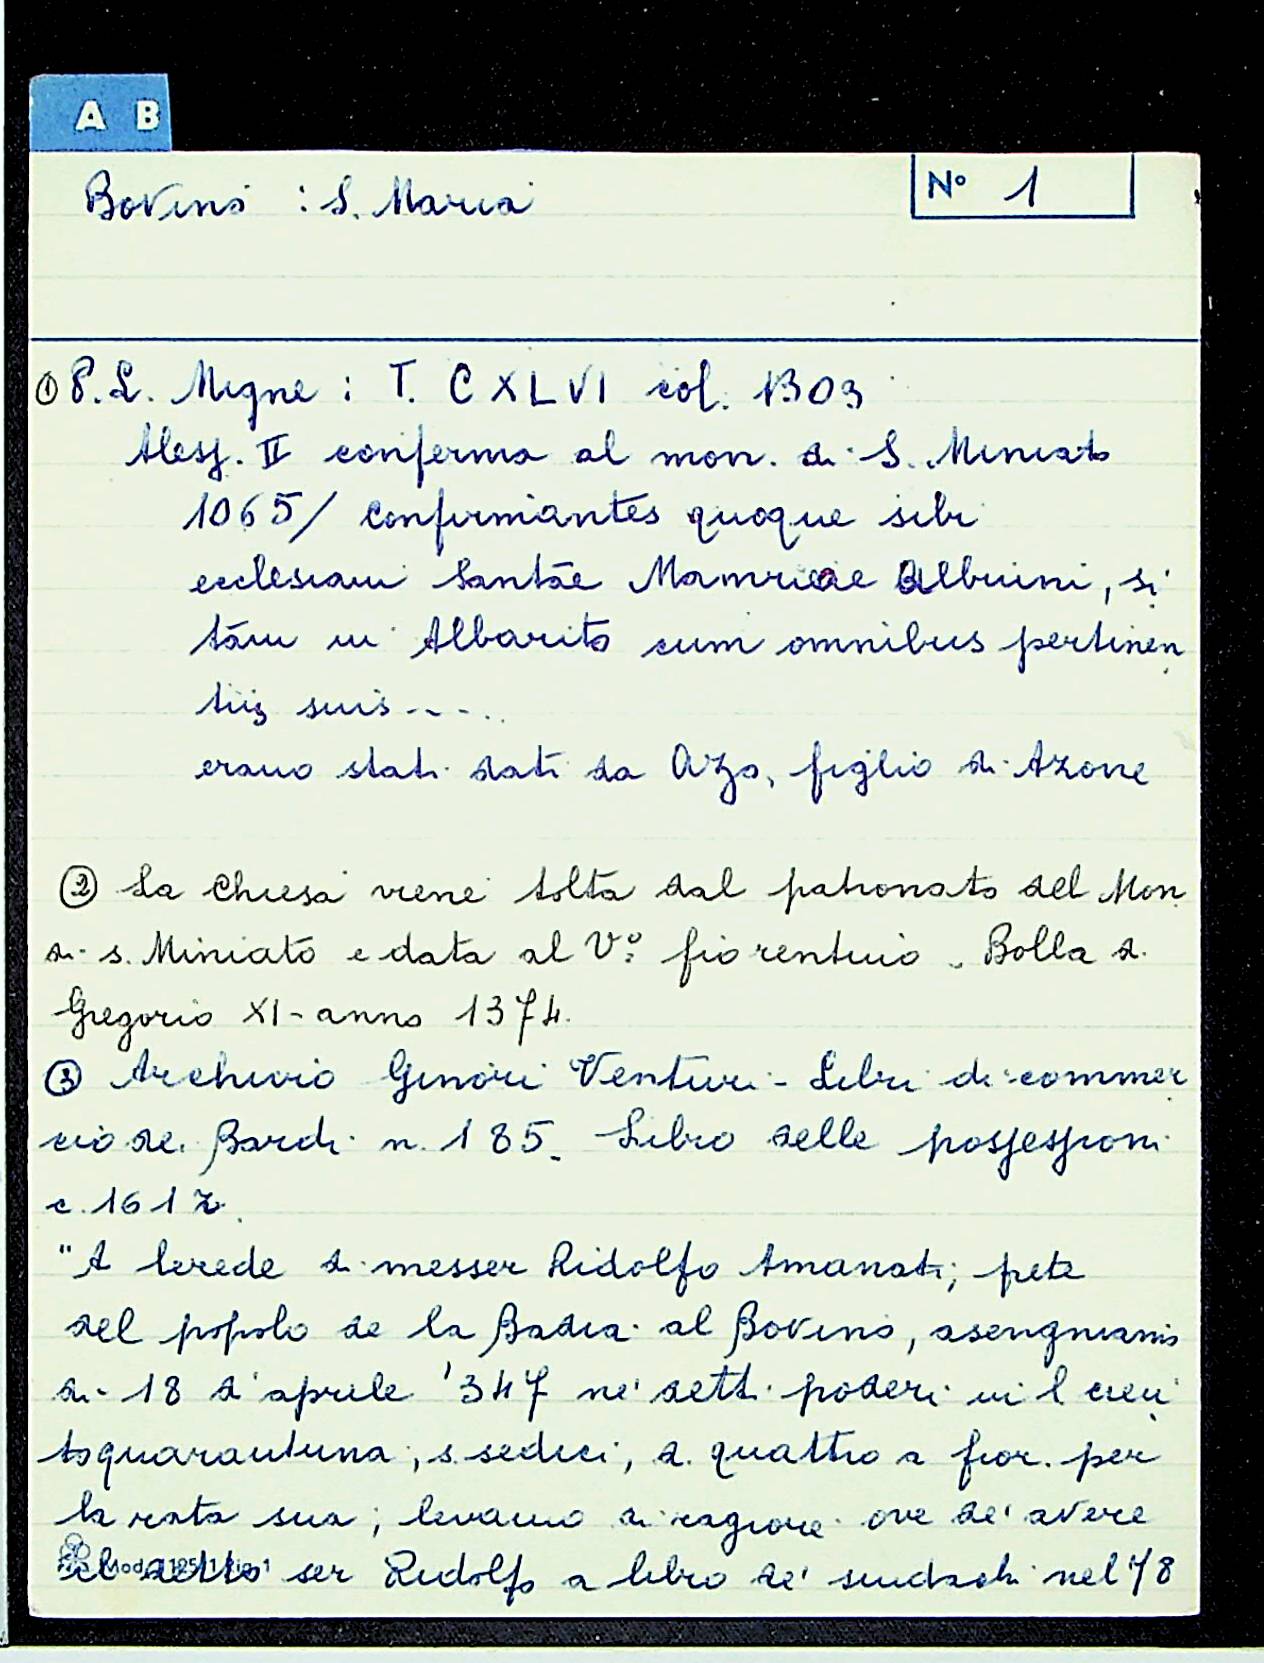 A B
Bovino : S. Maria
N° 1
① P.L. Migne : T. CXLVI col. 1303
Aless. II conferma al mon. di S. Miniato
1065/ confirmantes quoque sibi
ecclesiam Santāe Mamriae Albuini, si
tām in Albarito cum omnibus pertinen
tiis suis ----
erano stati dati da Azo, figlio di Azone
② La Chiesa viene tolta dal patronato del Mon
di s. Miniato e data al V° fiorentino. Bolla d.
Gregorio XI - anno 1374.
③ Archivio Ginori Venturi - Libri di commer
cio de. Bardi n. 185. Libro delle possessioni
c. 161
"A lerede di messer Ridolfo Amanati;
del popolo de la Badia al Bovino, asengniamo
di 18 d'aprile '347 ne' detti poderi in l cien
toquarantuna, s. sedici, d. quattro a fior. per
la rata sua; levamo di ragione ove de' avere
il detto ser Ridolfo a libro de' sindachi nel '78